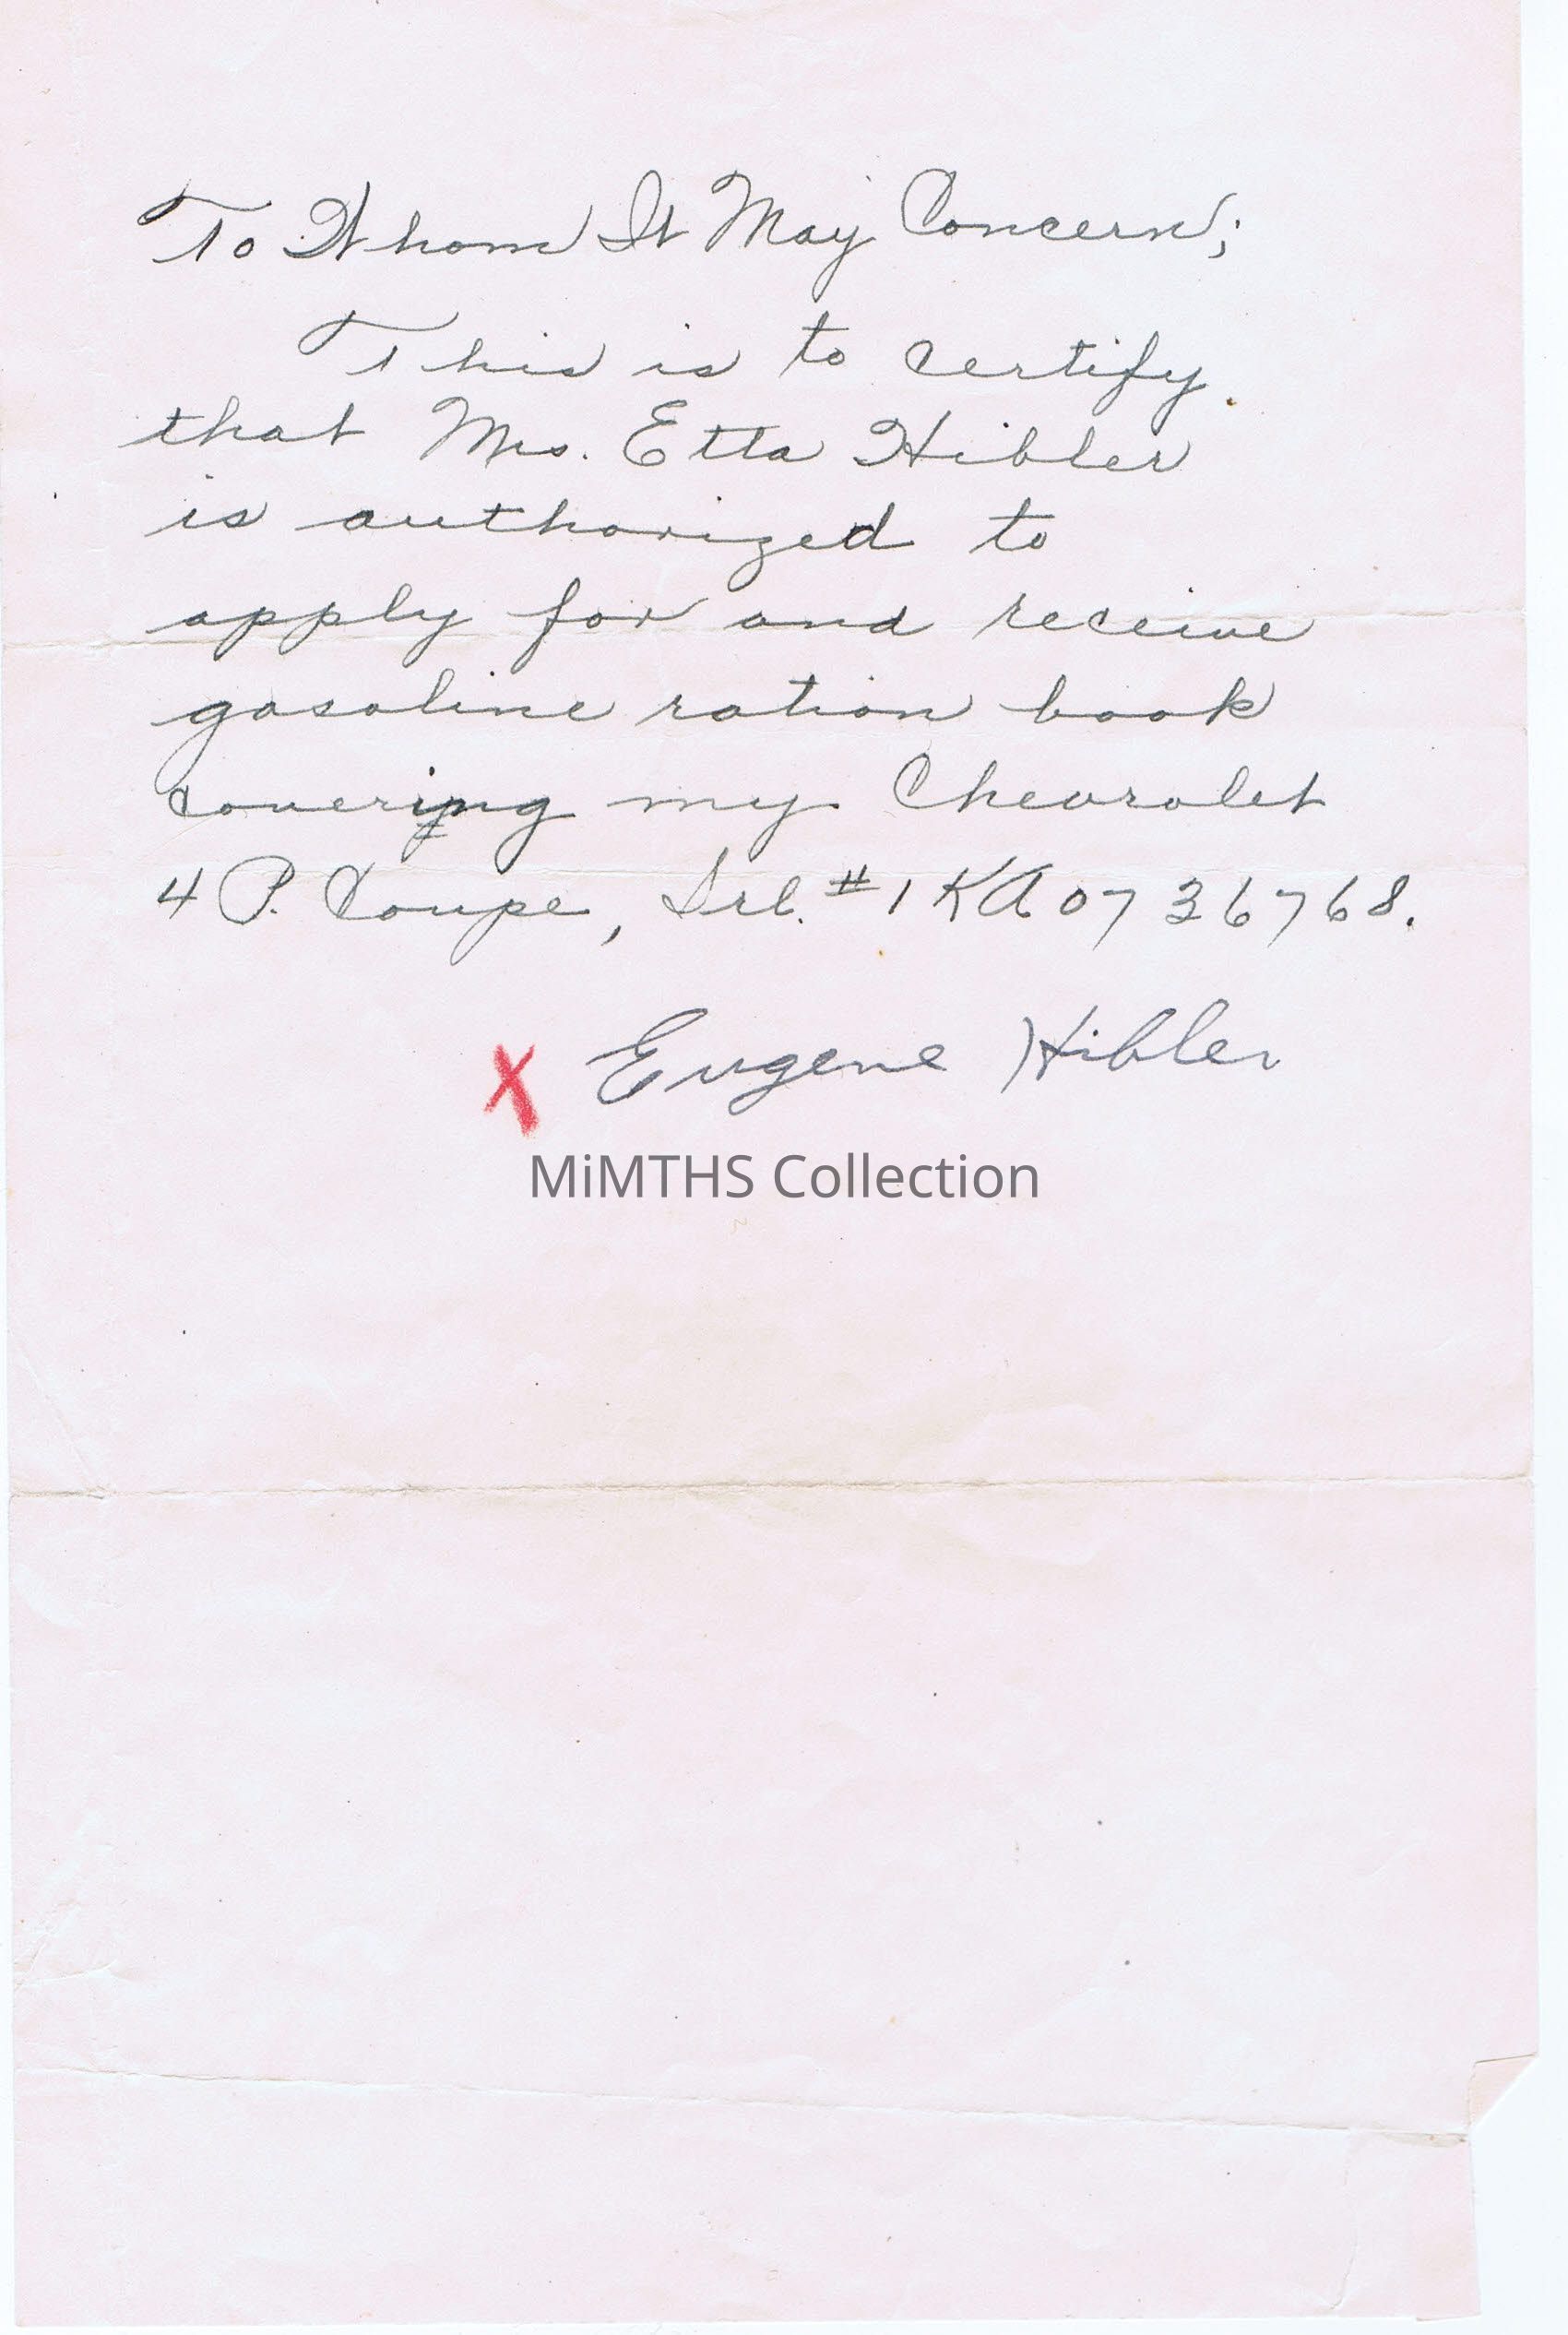 To Whom It May Concern;
This is to certify
that Mrs. Etta Hibler
is authorized to
apply for and receive
gasoline ration book
covering my Chevrolet
4 P. Coupe, Srl. # 1 KA 0736768.
X Eugene Hibler
MiMTHS Collection